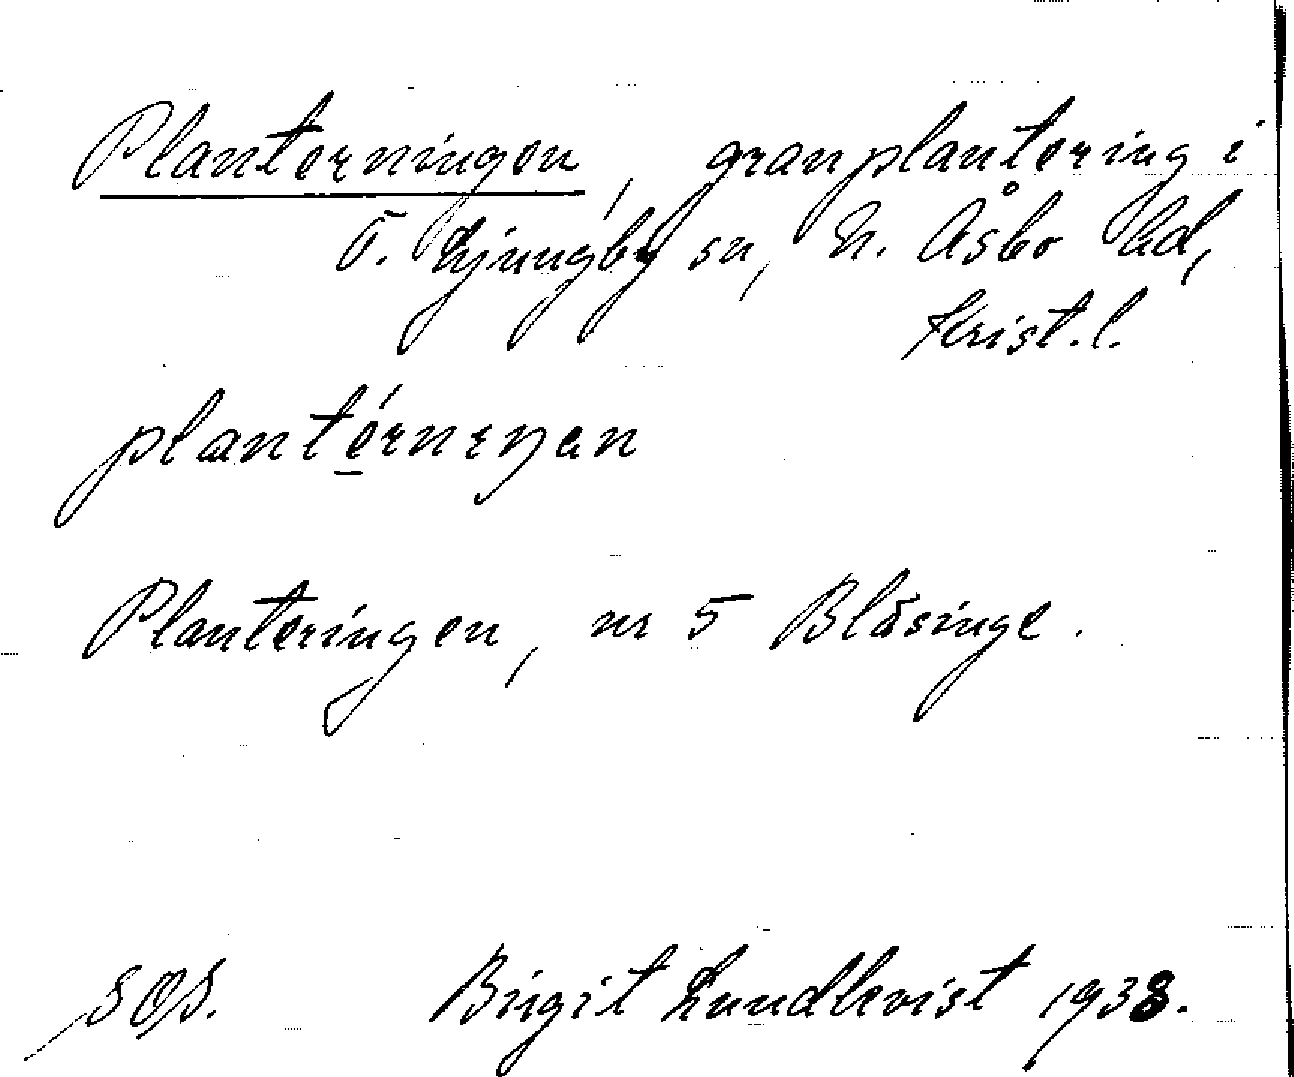 Planterningen, granplantering i
Ö. Ljungby sn, N. Åsbo hd,
Krist. l.
Planteringen, nr 5 Blåsinge.
Birgit Lundkvist 1938.